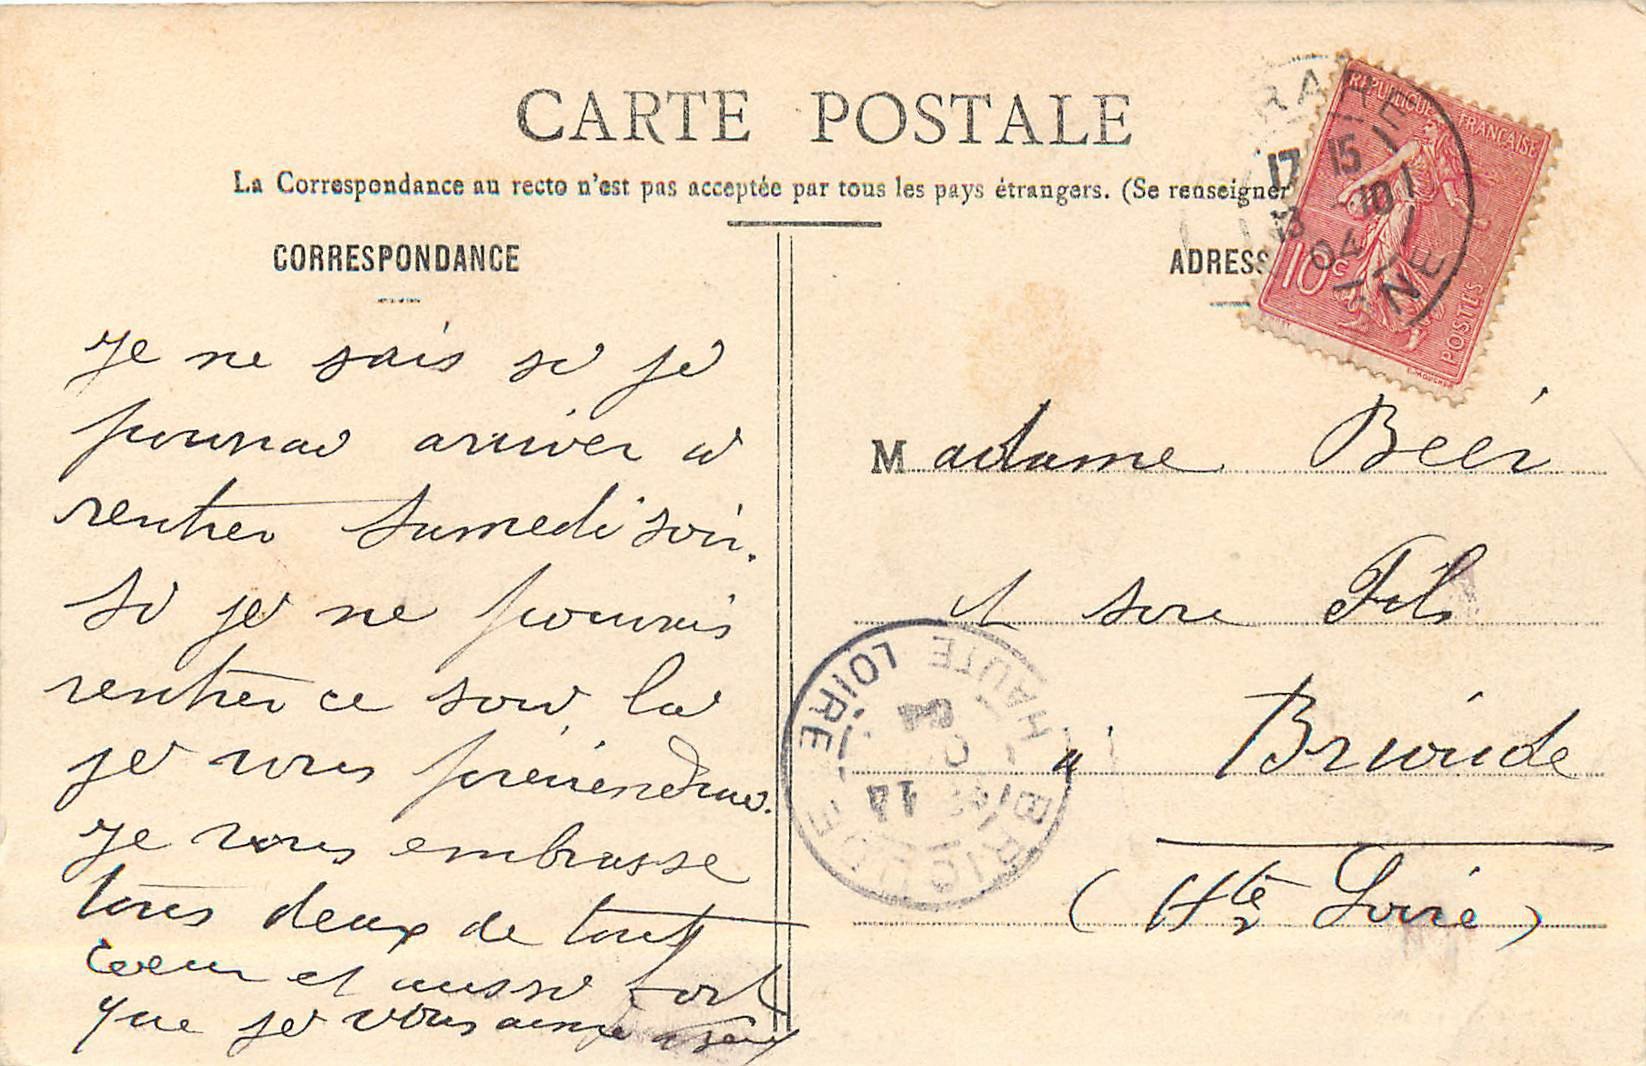 CARTE POSTALE
La Correspondance au recto n'est pas acceptée par tous les pays étrangers. (Se renseigner
CORRESPONDANCE
je ne sais si je
pourrai arriver a
rentrer Samedi soir.
Si je ne pouvais
rentrer ce soir la
je vous préviendrai.
je vous embrasse
tous deux de tout
coeur et aussi fort
que je vous aime
ADRESS
Madame Beer
et son Fils
a Brioude
(Hte Loire)
REPUBLIQUE FRANÇAISE
10 c
POSTES
RARE
17 15
13 -10
04
NE
BRIOUDE
HAUTE LOIRE
14
04